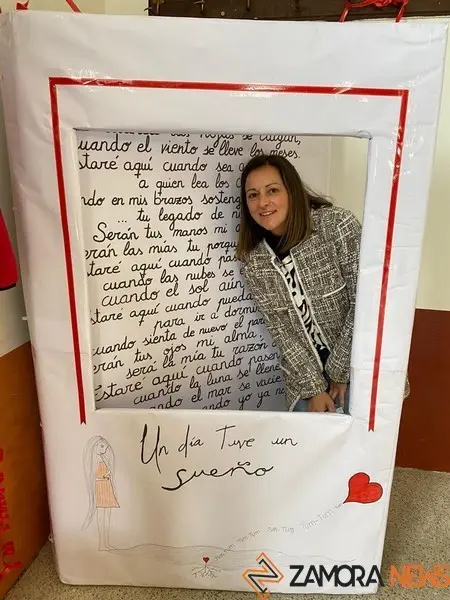 cuando el viento se lleve los meses.
Estaré aquí cuando sea
a quien lea los
ndo en mis brazos sosteng
... tu legado de
Serán tus manos mi
erán las mías tu
Estaré aquí cuando
cuando las nubes se
cuando el sol aún
Estaré aquí cuando pueda
para ir a dormi
cuando sienta de nuevo el
erán tus ojos mi alma
será la mía tu razón
Estaré aquí cuando pasen
cuando la luna se llene
uando el mar se vacíe
cuando yo ya
Un día Tuve un
sueño
Tum Tum Tum Tum Tum-Tum
ZAMORA NEWS